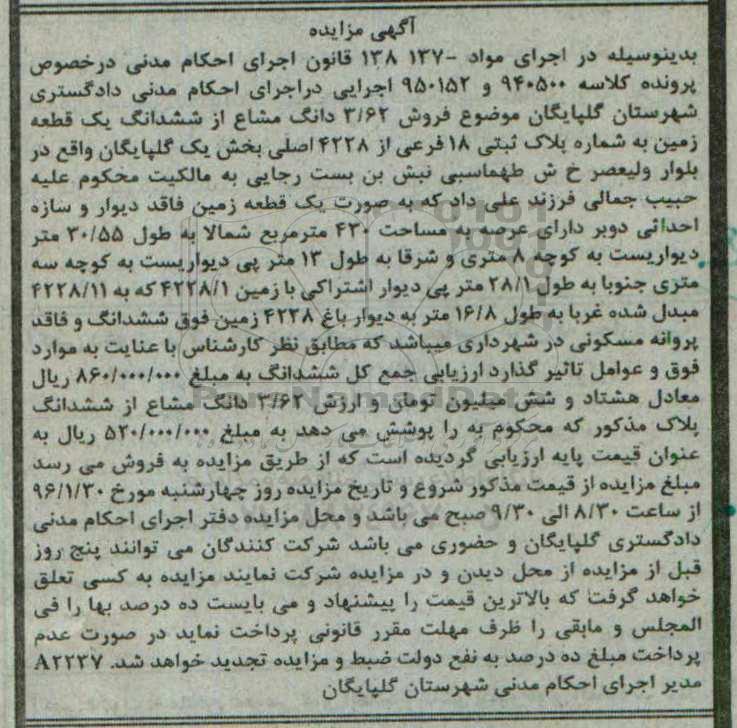 آگهی مزایده
بدینوسیله در اجرای مواد -۱۳۷ ۱۳۸ قانون اجرای احکام مدنی درخصوص
پرونده کلاسه ۹۴۰۵۰۰ و ۹۵۰۱۵۲ اجرایی دراجرای احکام مدنی دادگستری
شهرستان گلپایگان موضوع فروش ۳/۶۲ دانگ مشاع از ششدانگ یک قطعه
زمین به شماره پلاک ثبتی ۱۸ فرعی از ۴۲۲۸ اصلی بخش یک گلپایگان واقع در
بلوار ولیعصر خ ش طهماسبی نبش بن بست رجایی به مالکیت محکوم علیه
حبیب جمالی فرزند علی داد که به صورت یک قطعه زمین فاقد دیوار و سازه
احداثی دوبر دارای عرصه به مساحت ۴۳۰ مترمربع شمالا به طول ۳۰/۵۵ متر
دیواریست به کوچه ۸ متری و شرقا به طول ۱۳ متر پی دیواریست به کوچه سه
متری جنوبا به طول ۲۸/۱ متر پی دیوار اشتراکی با زمین ۴۲۲۸/۱ که به ۴۲۲۸/۱۱
مبدل شده غربا به طول ۱۶/۸ متر به دیوار باغ ۴۲۲۸ زمین فوق ششدانگ و فاقد
پروانه مسکونی در شهرداری میباشد که مطابق نظر کارشناس با عنایت به موارد
فوق و عوامل تاثیر گذارد ارزیابی جمع کل ششدانگ به مبلغ ۸۶۰/۰۰۰/۰۰۰ ریال
معادل هشتاد و شش میلیون تومان و ارزش ۳/۶۲ دانگ مشاع از ششدانگ
پلاک مذکور که محکوم به را پوشش می دهد به مبلغ ۵۲۰/۰۰۰/۰۰۰ ریال به
عنوان قیمت پایه ارزیابی گردیده است که از طریق مزایده به فروش می رسد
مبلغ مزایده از قیمت مذکور شروع و تاریخ مزایده روز چهارشنبه مورخ ۹۶/۱/۳۰
از ساعت ۸/۳۰ الی ۹/۳۰ صبح می باشد و محل مزایده دفتر اجرای احکام مدنی
دادگستری گلپایگان و حضوری می باشد شرکت کنندگان می توانند پنج روز
قبل از مزایده از محل دیدن و در مزایده شرکت نمایند مزایده به کسی تعلق
خواهد گرفت که بالاترین قیمت را پیشنهاد و می بایست ده درصد بها را فی
المجلس و مابقی را ظرف مهلت مقرر قانونی پرداخت نماید در صورت عدم
پرداخت مبلغ ده درصد به نفع دولت ضبط و مزایده تجدید خواهد شد. A۲۲۲۷
مدیر اجرای احکام مدنی شهرستان گلپایگان